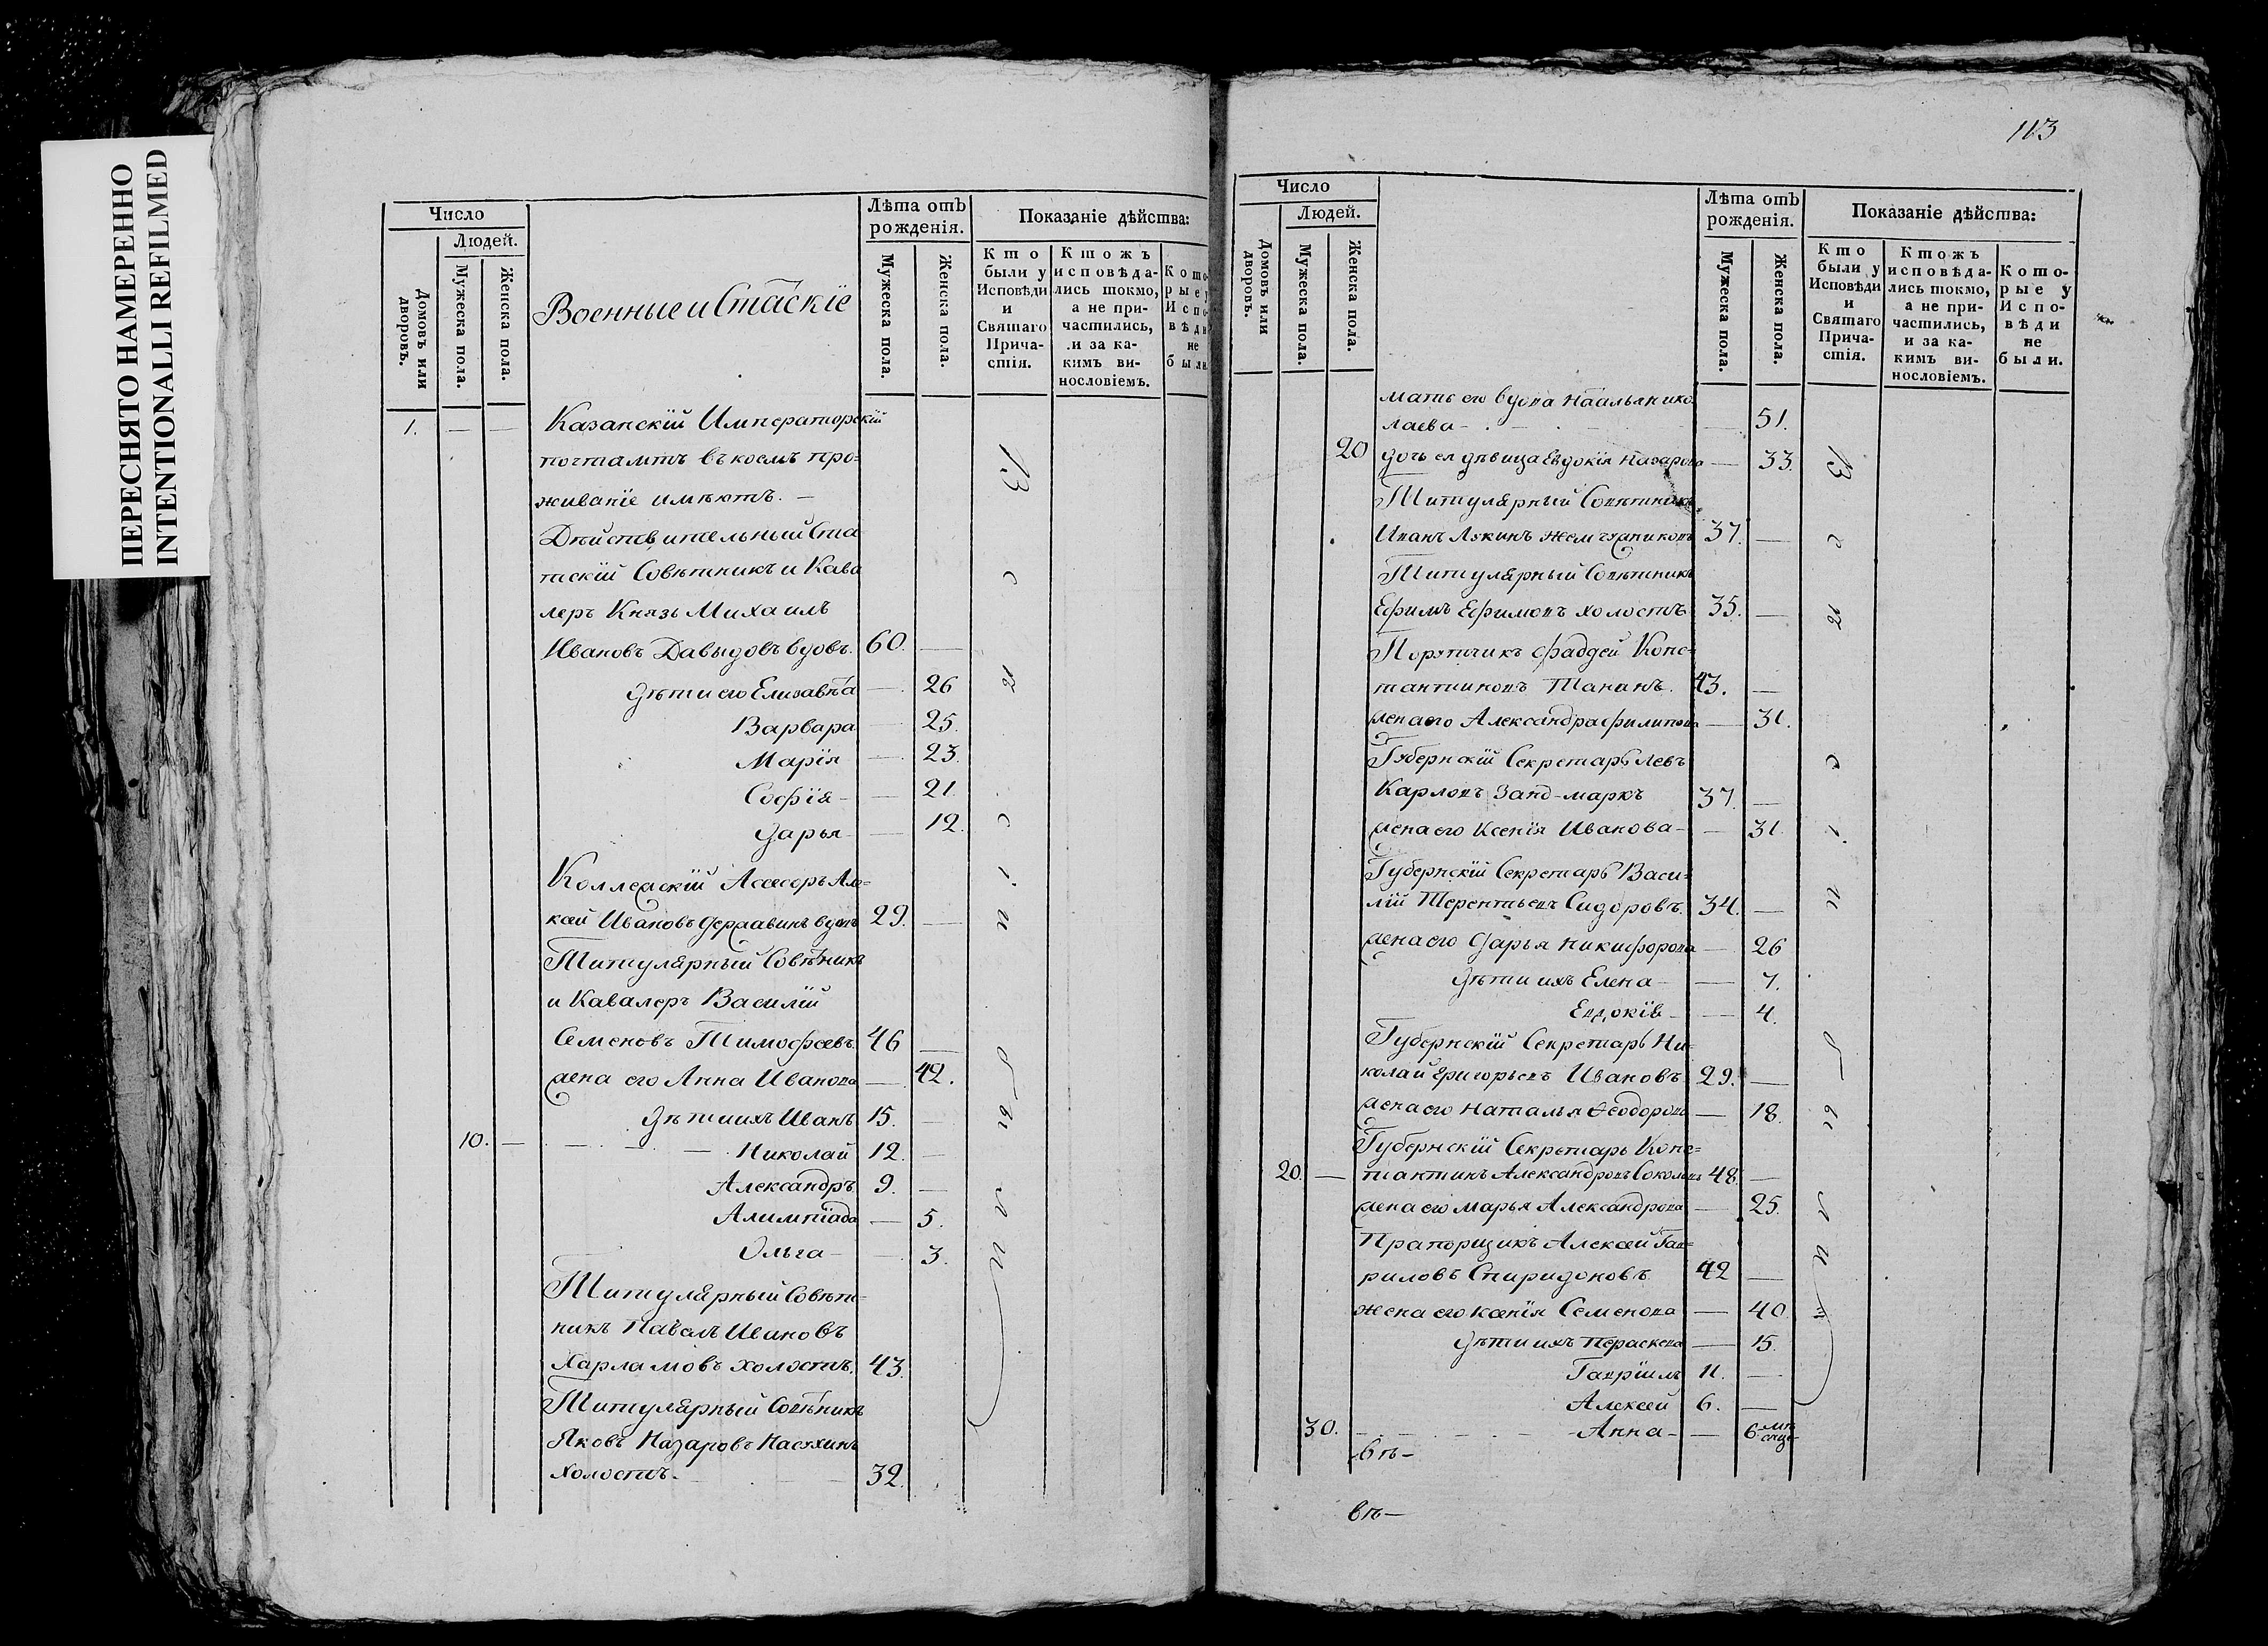 ПЕРЕСНЯТО НАМЕРЕННО
INTENTIONALLI REFILMED
Число
Людей.
Домовъ или дворовъ.
Мужеска пола.
Женска пола.
Военные и Статскіе
Лѣта отъ рожденія.
Мужеска пола.
Женска пола.
Показаніе дѣйства:
Кто были у Исповѣди и Святаго Причастія.
Ктожъ исповѣдались токмо, а не причастились, и за какимъ винословіемъ.
Которые у Исповѣди не были.
1. — — Казанскій Императорскій
почтамтъ въ коемъ про=
живаніе имѣютъ. —
Дѣйствительный Ста
тскій Совѣтникъ и Кава
леръ Князь Михаилъ
Ивановъ Давыдовъ вдовъ. 60. —
дѣти его Елизавѣта — 26
Варвара — 25.
Марія — 23.
Софія — 21.
Дарья — 12.
Коллежскій Ассесоръ Але=
ксей Ивановъ Державинъ вдовъ 29. —
Титулярный Совѣтникъ
и Кавалеръ Василій
Семеновъ Тимофеевъ. 46 —
жена его Анна Иванова — 42.
дѣти ихъ Иванъ 15. —
10. — Николай 12. —
Александръ 9. —
Алимпіада — 5.
Ольга — 3.
Титулярный Совѣт=
никъ Павелъ Ивановъ
Харламовъ холостъ. 43.
Титулярный Совѣтникъ
Яковъ Назаровъ
холостъ. — 32.
113
Число
Людей.
Домовъ или дворовъ.
Мужеска пола.
Женска пола.
Лѣта отъ рожденія.
Мужеска пола.
Женска пола.
Показаніе дѣйства:
Кто были у Исповѣди и Святаго Причастія.
Ктожъ исповѣдались токмо, а не причастились, и за какимъ винословіемъ.
Которые у Исповѣди не были.
мать его вдова Наталья Нико
лаева — 51.
20 дочь ея дѣвица Евдокія Назарова — 33.
Титулярный Совѣтникъ
Иванъ Лукинъ Жемчужниковъ 37. —
Титулярный Совѣтникъ
Ефимъ Ефимовъ холостъ 35. —
Порутчикъ Фаддей Конс=
тантиновъ 43. —
жена его Александра Филипова — 31.
Губернскій Секретарь Левъ
Карловъ Занд-маркъ 37. —
жена его Ксенія Иванова — 31.
Губернскій Секретарь Васи=
лій Терентьевъ Сидоровъ. 34. —
жена его Дарья Никифорова — 26
дѣти ихъ Елена — 7.
Евдокія — 4.
Губернскій Секретарь Ни=
колай Григорьевъ Ивановъ 29. —
жена его Наталья Ѳеодорова — 18.
Губернскій Секретарь Конс=
20. — тантинъ Александровъ Соколовъ 48. —
жена его Марья Александрова — 25.
Прапорщикъ Алексей Гав=
риловъ Спиридоновъ 42 —
жена его Ксенія Семенова — 40
дѣти ихъ Параскева — 15.
Гавріилъ 11. —
Алексей 6. —
30. — Анна — 6 мѣсяцъ
въ —